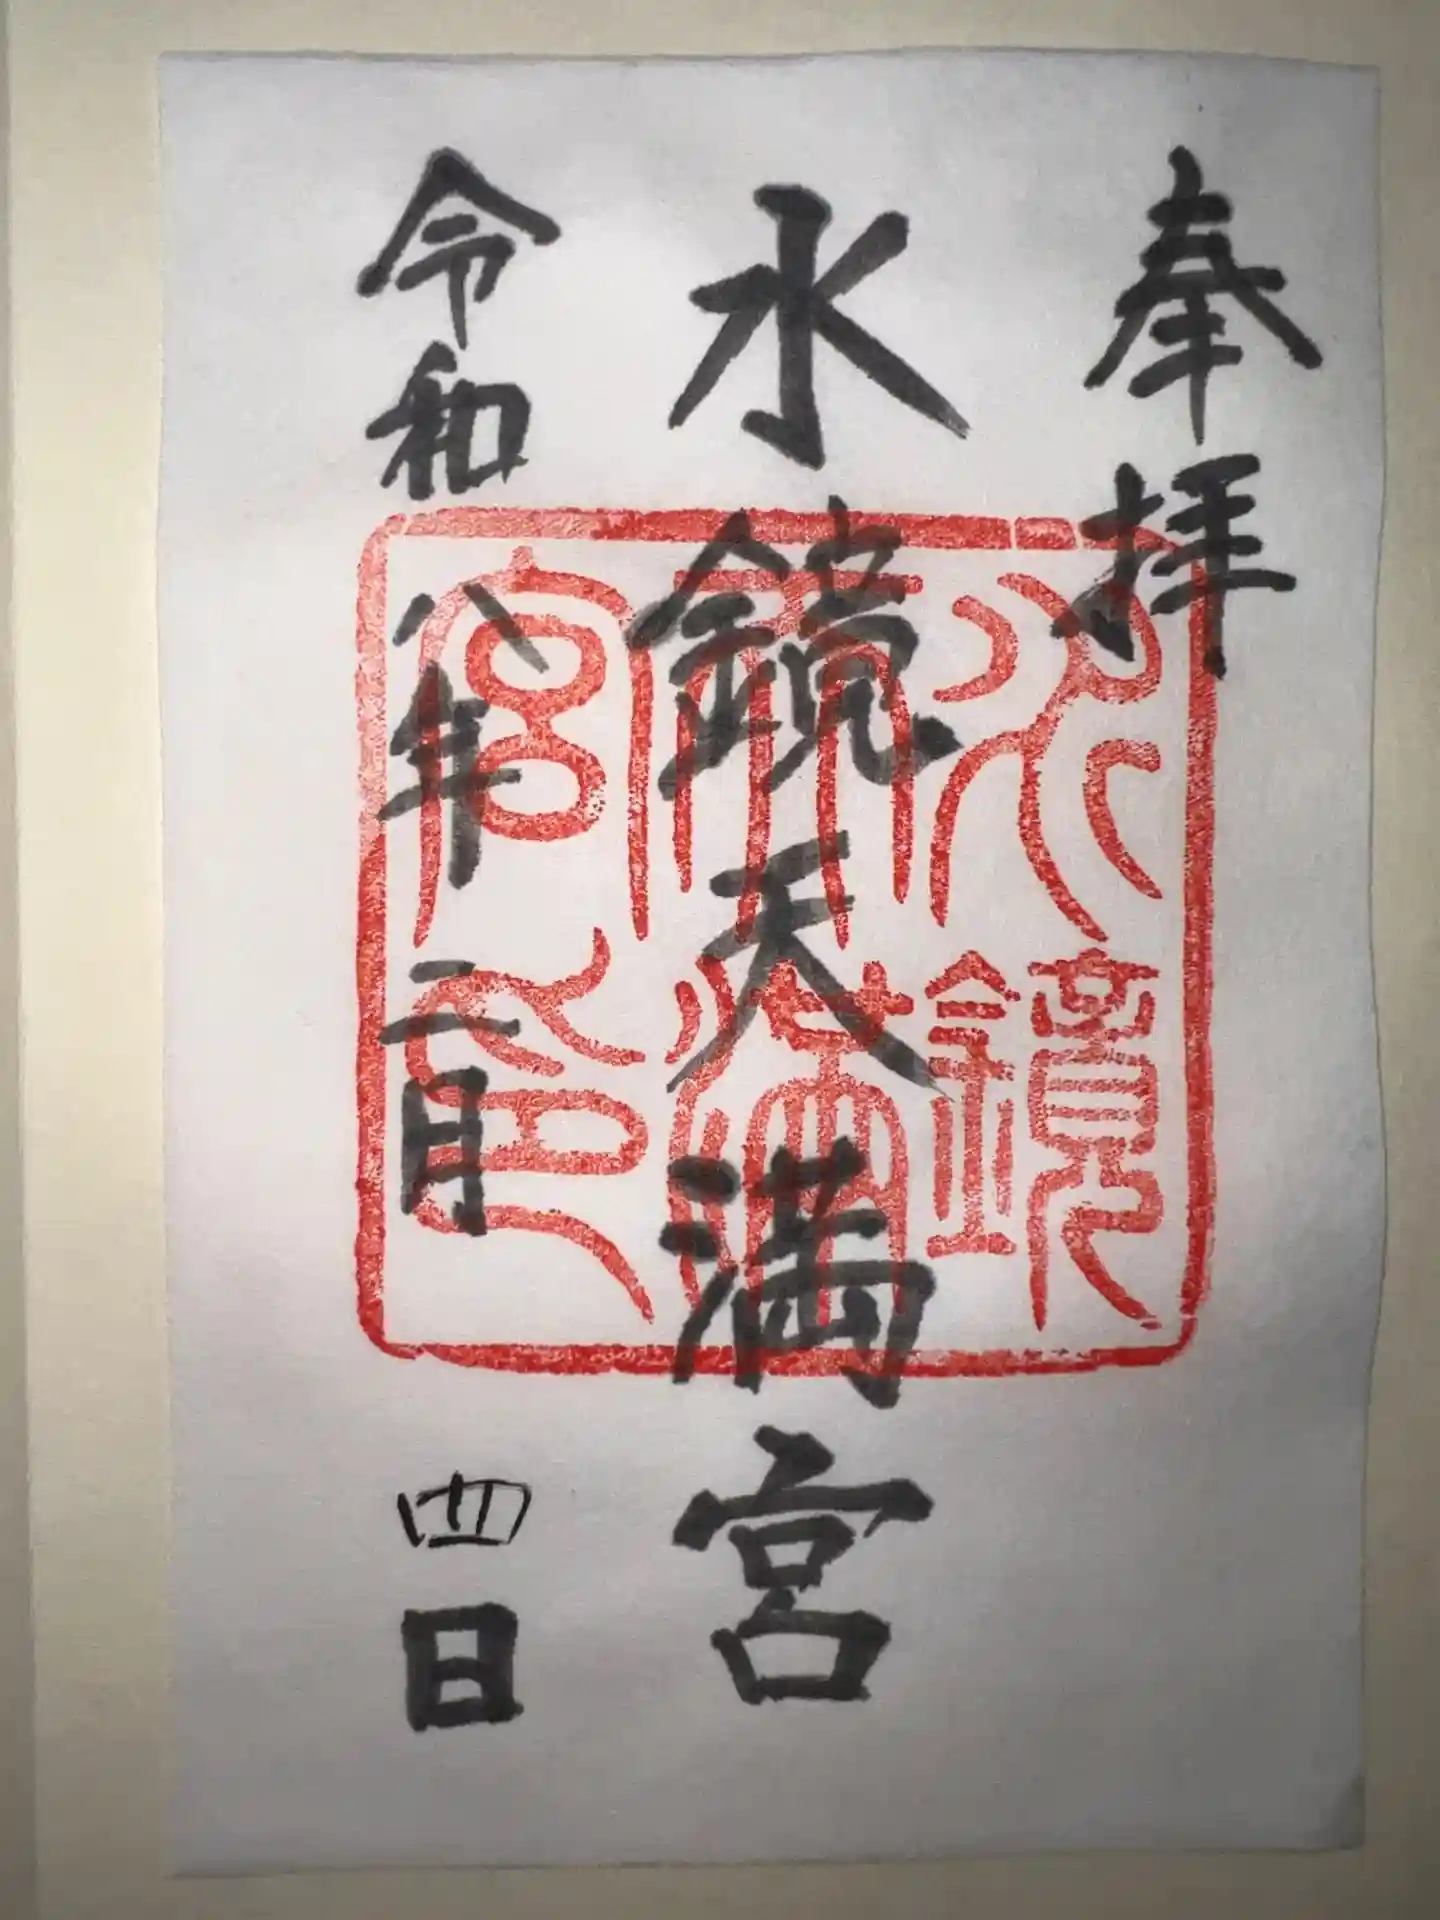 奉拝
水鏡天満宮
令和八年二月四日
水鏡天満宮之印